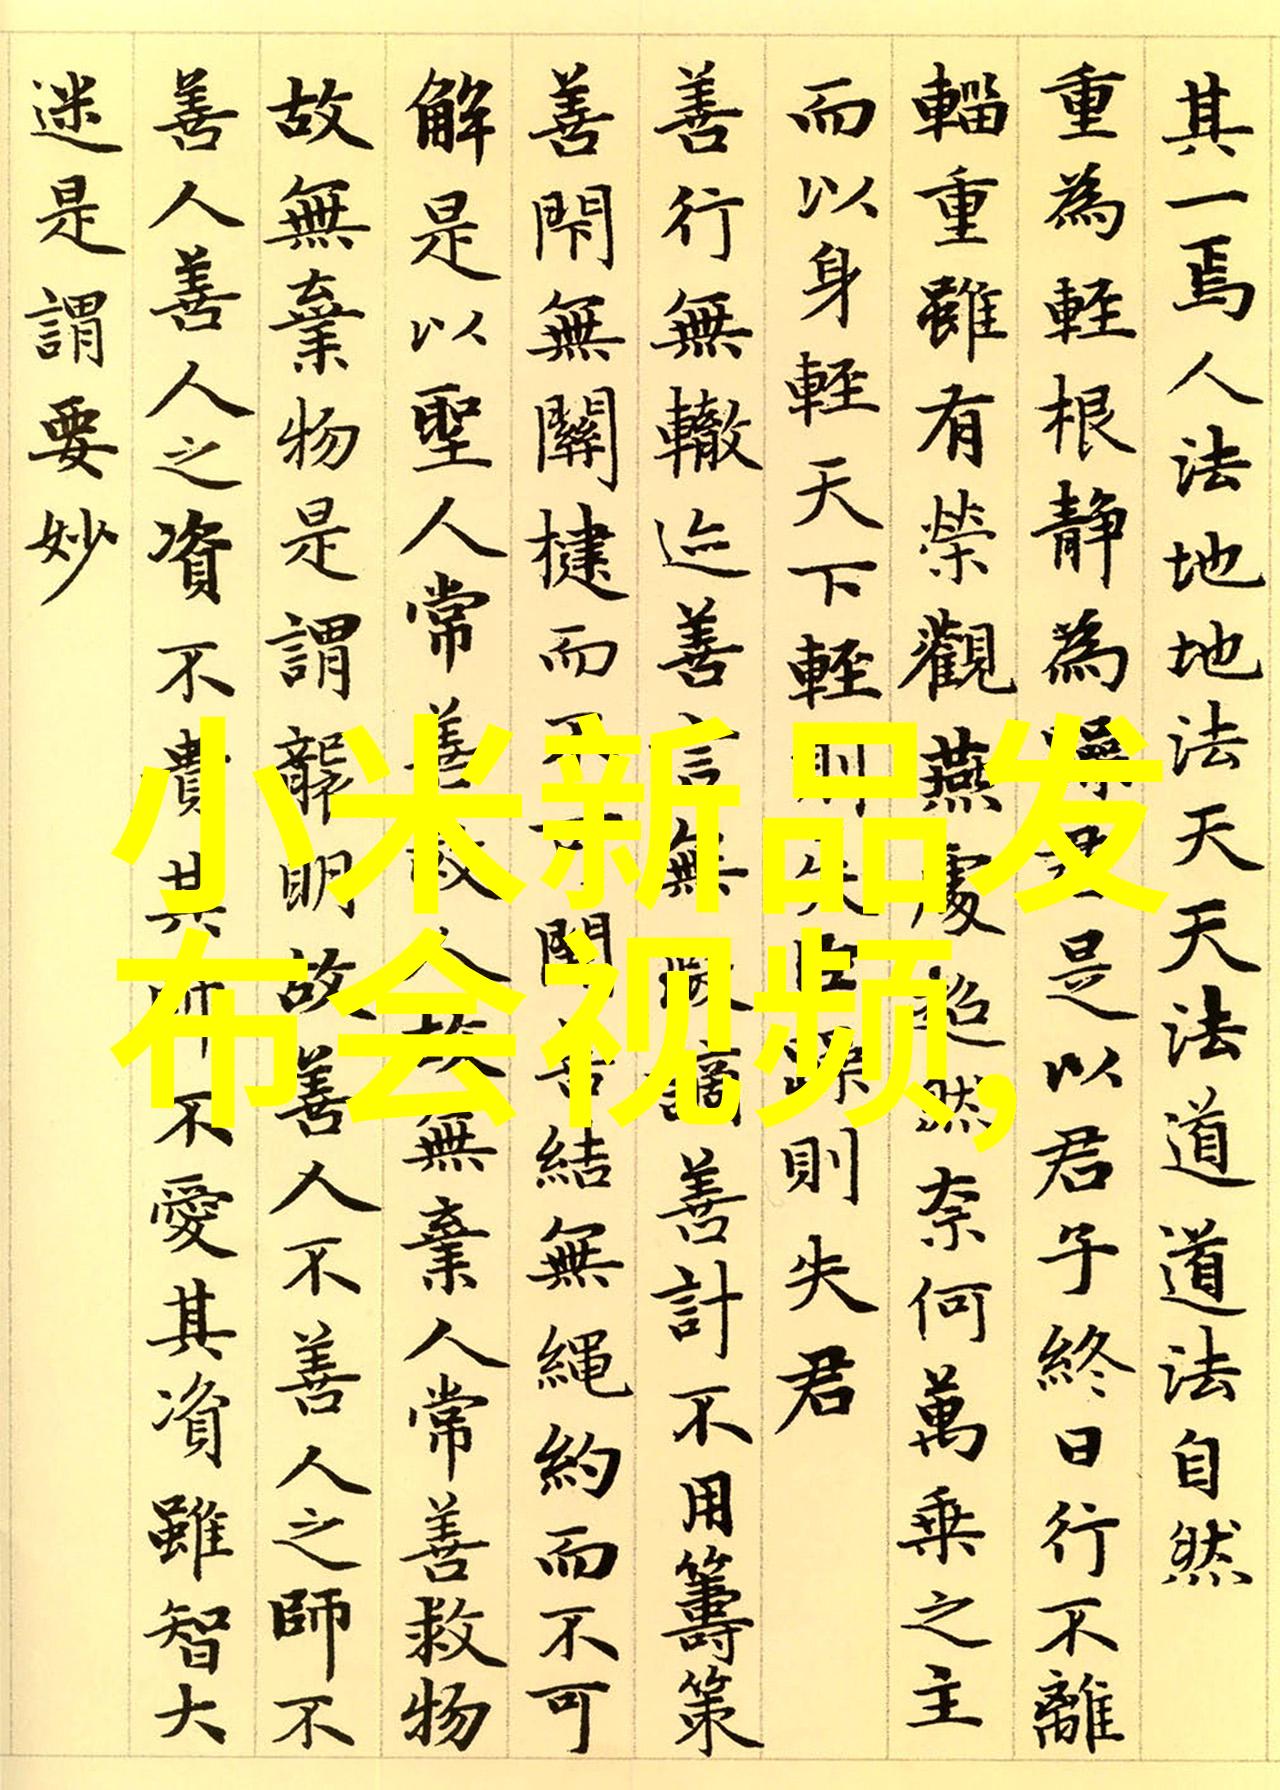 其一焉人法地地法天天法道道法自然
重為輕根靜為躁君是以君子終日行不離
輜重雖有榮觀燕處超然奈何萬乘之主
而以身輕天下輕則失臣躁則失君
善行無轍迹善言無瑕謫善計不用籌策
善閇無關楗而不可開善結無繩約而不可
解是以聖人常善救人故無棄人常善救物
故無棄物是謂襲明故善人不善人之師不
善人善人之資不貴其師不愛其資雖智大
迷是謂要妙
小米新品发
布会视频,